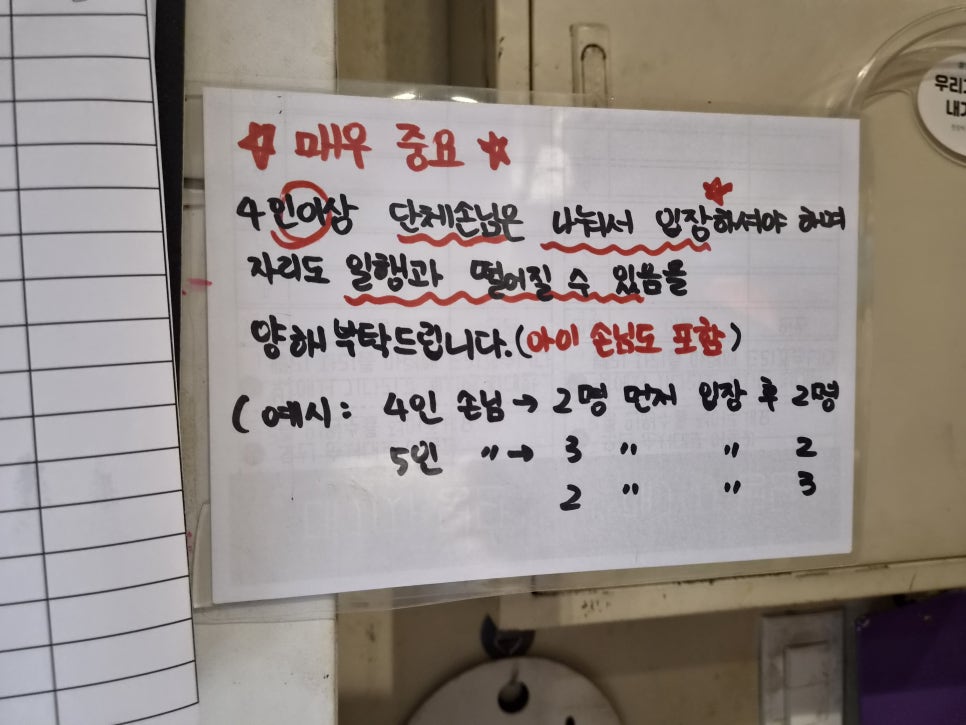 ☆ 매우 중요 ☆
4인이상 단체손님은 나눠서 입장하셔야 하며
자리도 일행과 떨어질 수 있음을
양해 부탁드립니다.(아이 손님도 포함)
(예시: 4인 손님 → 2명 먼저 입장 후 2명
5인 〃 → 3 〃 〃 2
2 〃 〃 3
우리